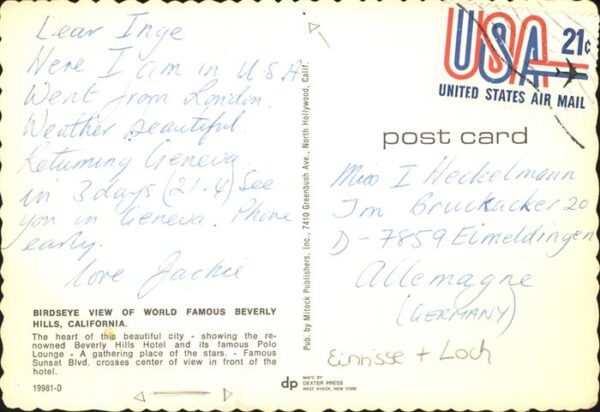 Dear Inge
Here I am in U.S.A.
Went from London.
Weather beautiful.
Returning Geneva
in 3 days (21.4) See
you in Geneva. Phone
early.
love Jackie
BIRDSEYE VIEW OF WORLD FAMOUS BEVERLY
HILLS, CALIFORNIA.
The heart of this beautiful city - showing the re-
nowned Beverly Hills Hotel and its famous Polo
Lounge - A gathering place of the stars. - Famous
Sunset Blvd. crosses center of view in front of the
hotel.
19981-D
Pub. by Mitock Publishers, Inc., 7410 Greenbush Ave., North Hollywood, Calif.
dp
MADE BY
DEXTER PRESS
WEST NYACK, NEW YORK
USA 21c
UNITED STATES AIR MAIL
post card
Miss I Heckelmann
Im Bruckacker 20
D-7859 Eimeldingen
Allemagne
(GERMANY)
Einrisse + Loch